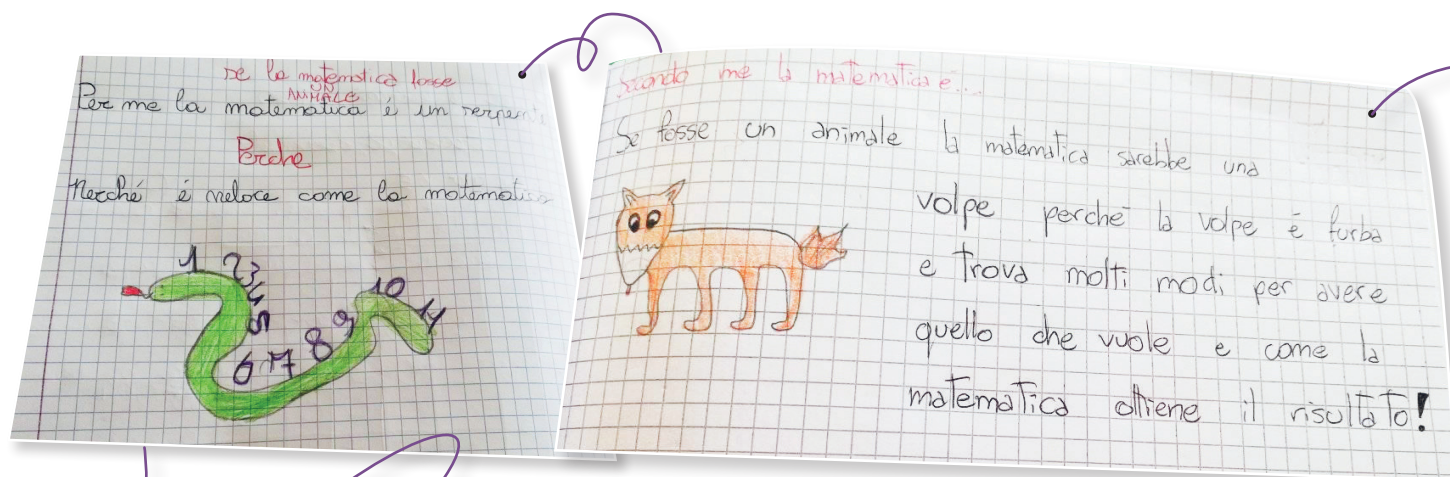 se la matematica fosse
UN
ANIMALE
Per me la matematica è un serpen
Perche
Perché é veloce come la matematica
1 2 3 4 5 6 7 8 9 10 11
Secondo me la matematica è...
Se fosse un animale la matematica sarebbe una
volpe perchè la volpe è furba
e trova molti modi per avere
quello che vuole e come la
matematica ottiene il risultato!